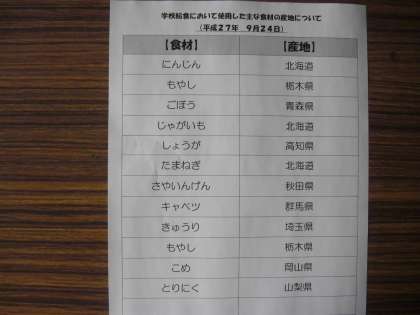 学校給食において使用した主な食材の産地について
(平成27年 9月24日)
【食材】 【産地】
にんじん 北海道
もやし 栃木県
ごぼう 青森県
じゃがいも 北海道
しょうが 高知県
たまねぎ 北海道
さやいんげん 秋田県
キャベツ 群馬県
きゅうり 埼玉県
もやし 栃木県
こめ 岡山県
とりにく 山梨県